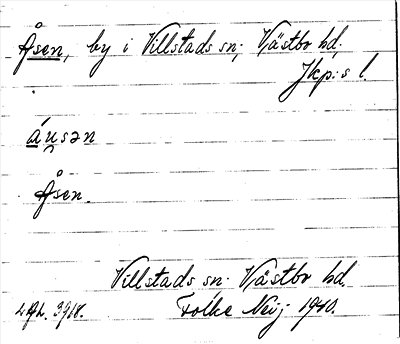 Åsen, by i Villstads sn; Västbo hd.
Jkp:s l.
áu̯sən
Åsen.
Villstads sn. Västbo hd.
Folke Neij 1940.
3918.